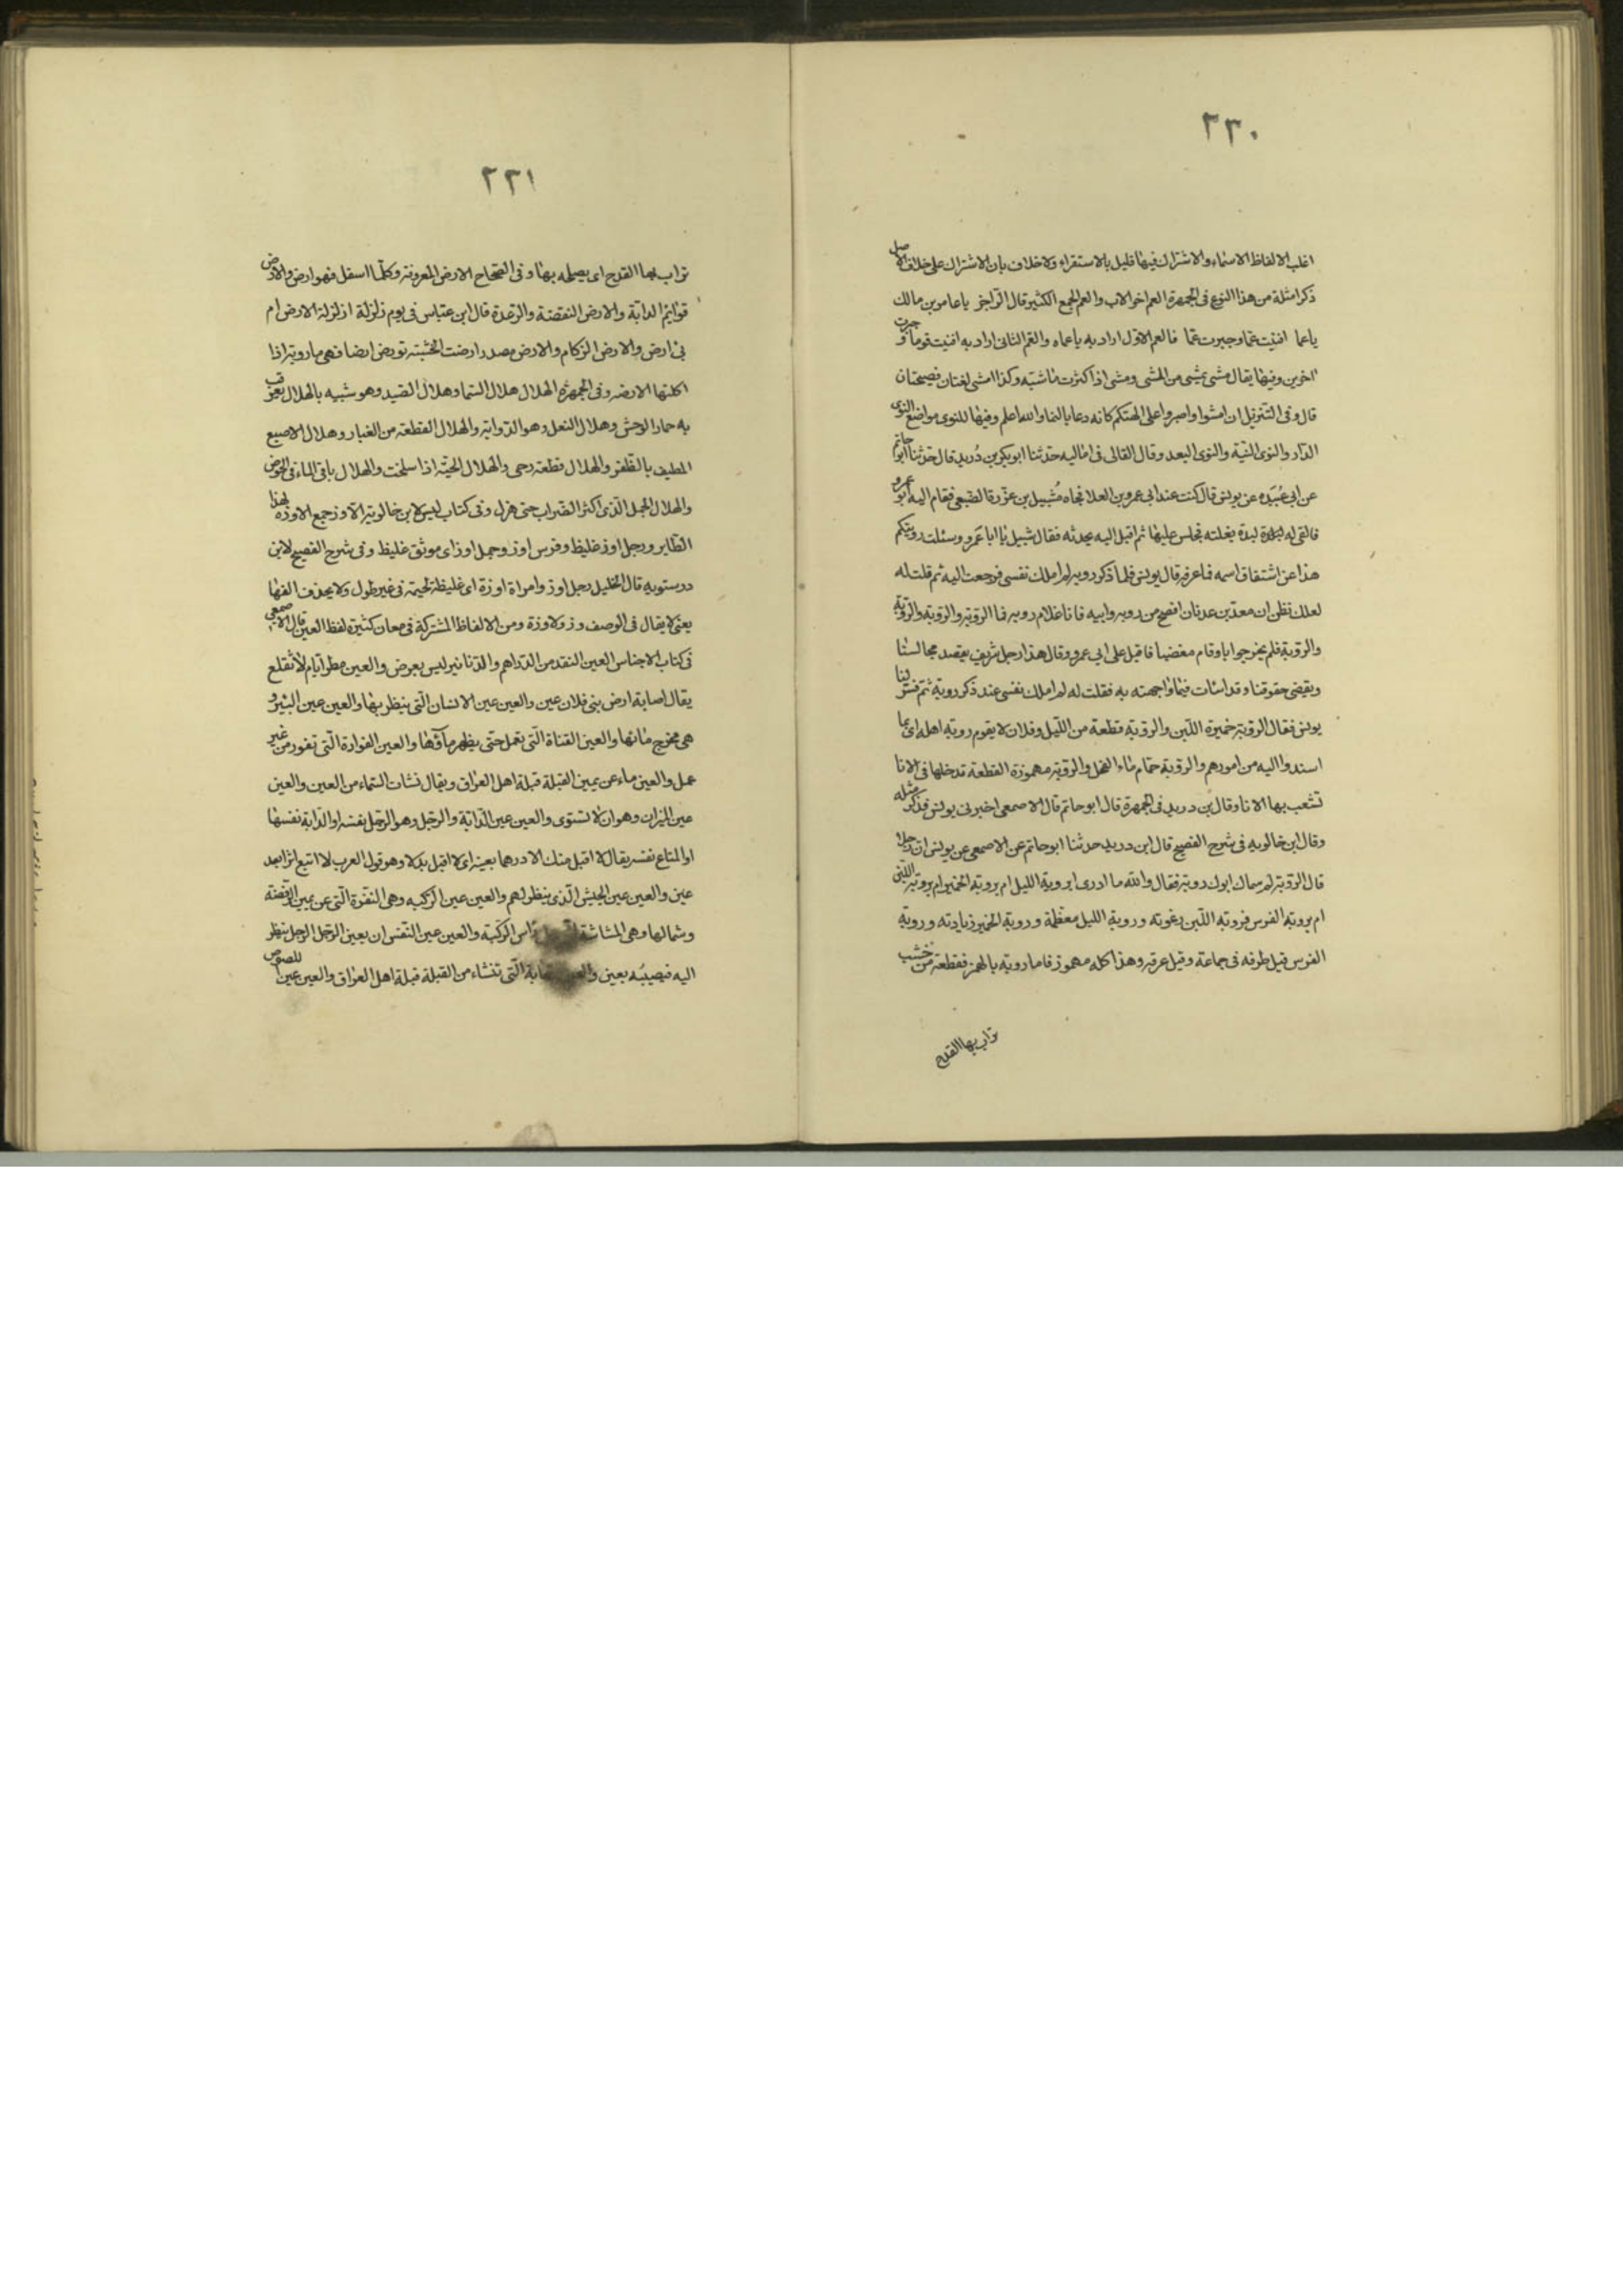 ٢٣٠
اغلب الالفاظ الاسماء والاشتراك فيها قليل بالاستقراء ولا خلاف بان الاشتراك على خلاف الاصل
ذكر امثلة من هذا النوع فى الجمهرة العم اخو الاب والعم الجمع الكثير قال الراجز يا عامر بن مالك
يا عما افنيت عما وجبرت عما فالعم الاول اراد به يا عماه والعم الثانى اراد به افنيت قوما وجبرت
اخرين وفيها يقال مشى يمشى من المشى ومشى اذا كثرت ماشيته وكذا امشى لغتان فصيحتان
قال وفى التنزيل ان امشوا واصبروا على الهتكم كانه دعا بالنما والله اعلم وفيها للنوى مواضع النوى
الدار والنوى النية والنوى البعد وقال القالى فى اماليه حدثنا ابو بكر بن دريد قال حدثنا ابو حاتم
عن ابى عبيده عن يونس قال كنت عند ابى عمرو بن العلا فجاه شبيل بن عزرة الضبعى فقام اليه ابو عمرو
فالقى له لبدة بغلته فجلس عليها ثم اقبل اليه يحدثه فقال شبيل يا ابا عمرو وسئلت رويتكم
هذا عن اشتقاق اسمه فما عرفه قال يونس فلما ذكر روبه لم املك نفسى فرجعت اليه ثم قلت له
لعلك تظن ان معد بن عدنان افصح من روبه وابيه فانا غلام روبه فما الروبة والروبة والروبة
والروبة فلم يحر جوابا وقام مغضبا فاقبل على ابى عمرو وقال هذا رجل شريف يقصد مجالسنا
ويقضى حقوقنا وقد اسات فيما واجهته به فقلت له لم املك نفسى عند ذكر روبة ثم فسر لنا
يونس فقال الروبة خميرة اللبن والروبة قطعة من الليل وفلان لا يقوم روبة اهله اى بما
اسندوا اليه من امورهم والروبة جمام ماء الفحل والروبة مهموزة القطعة تدخلها فى الانا
تشعب بها الانا وقال بن دريد فى الجمهرة قال ابو حاتم قال الاصمعى اخبرنى يونس فذكر مثله
وقال ابن خالويه فى شرح الفصيح قال ابن دريد حدثنا ابو حاتم عن الاصمعى عن يونس ان رجلا
قال الروبة لم سماك ابوك روبة فقال والله ما ادرى ابروبة الليل ام بروبة الخمير ام بروبة اللبن
ام بروبة الفرس فروبة اللبن رغوته وروبة الليل معظمة وروبة الخمير زيادته وروبة
الفرس قيل طرقه فى جماعة وقيل عرقه وهذا كله مهموز فاما روبة بالهمز فقطعة من خشب
تراب بها القدح
٢٣١
تراب بها القدح اى يصلحه بها وفى الصحاح الارض المعروفة وكلما اسفل فهو ارض والارض
قوائم الدابة والارض النفضة والرعدة قال ابن عباس فى يوم زلزلة ازلزلة الارض ام
بى ارض والارض الزكام والارض مصدر ارضت الخشبة تورض ارضا فهى ماروضة اذا
اكلتها الارضه وفى الجمهرة الهلال هلال السما وهلال الصيد وهو شبيه بالهلال يعرقب
به حمار الوحش وهلال النعل وهو الذوابة والهلال القطعة من الغبار وهلال الاصبع
المطيف بالظفر والهلال قطعة رحى والهلال الحية اذا سلخت والهلال باقى الماء فى الحوض
والهلال الجمل الذى اكثر الضراب حتى هزل وفى كتاب ليس لابن خالويه الاوز جمع الاوزه لهذا
الطاير ورجل اوز غليظ وفرس اوز وجمل اوز اى موثق غليظ وفى شرح الفصيح لابن
درستويه قال الخليل رجل اوز وامراة اوزة اى غليظة لحيمة فى غير طول ولا يحذف الفها
يعنى لا يقال فى الوصف وز ولا وزة ومن الالفاظ المشتركة فى معان كثيرة لفظ العين قال الاصمعى
فى كتاب الاجناس العين النقد من الدراهم والدنانير ليس بعرض والعين مطر ايام لا تقلع
يقال اصابة ارض بنى فلان عين والعين عين الانسان التى ينظر بها والعين عين البئر و
هى مخرج مائها والعين القناة التى تعمل حتى يظهر ماؤها والعين الفوارة التى تفور من غير
عمل والعين ماء عن يمين القبلة قبلة اهل العراق ويقال نشات السماء من العين والعين
عين الميزان وهو ان لا تستوى والعين عين الدابة والرجل وهو الرجل نفسه او الدابة نفسها
او المتاع نفسه يقال لا اقبل منك الا درهما بعينه اى لا اقبل بدلا وهو قول العرب لا اتبع اثرا بعد
عين والعين عين الجيش الذى ينظر لهم والعين عين الركبه وهى النقرة التى عن يمين الرضفة
وشمالها وهى المشاشة راس الركبة والعين عين النفس ان يعين الرجل الرجل ينظر
اليه فيصيبه بعين التى تنشاء من القبلة قبلة اهل العراق والعين عين اللصوص